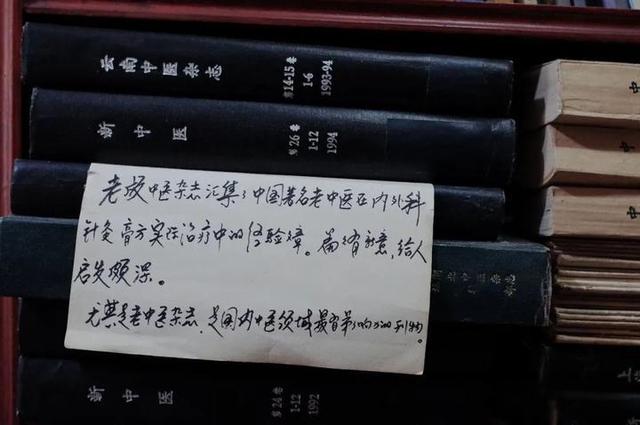 云南中医杂志
第14-15卷
1-6
1993-94
新中医
第26卷
1-12
1994
老版中医杂志汇集了中国著名老中医在内外科
针灸膏方实际治疗中的经验. 篇篇有新意,给人
启发颇深。
尤其是老中医杂志,是国内中医领域最有影响力的刊物。
北中医杂志
新中医
第24卷
1-12
1992
中
中
中
上